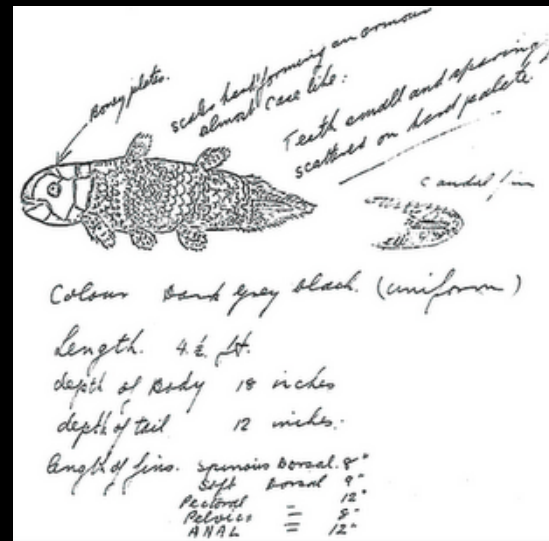 Boney plates.
scales hard forming an armour
almost case like:
Teeth small and sparsing
scattered on hard palete.
Caudal fin
Colour Dark grey black. (uniform)
Length. 4½ ft.
depth of Body 18 inches
depth of tail 12 inches.
length of fins. Spinous Dorsal. 8"
Soft Dorsal 9"
Pectoral = 12"
Pelvics = 8"
ANAL = 12"